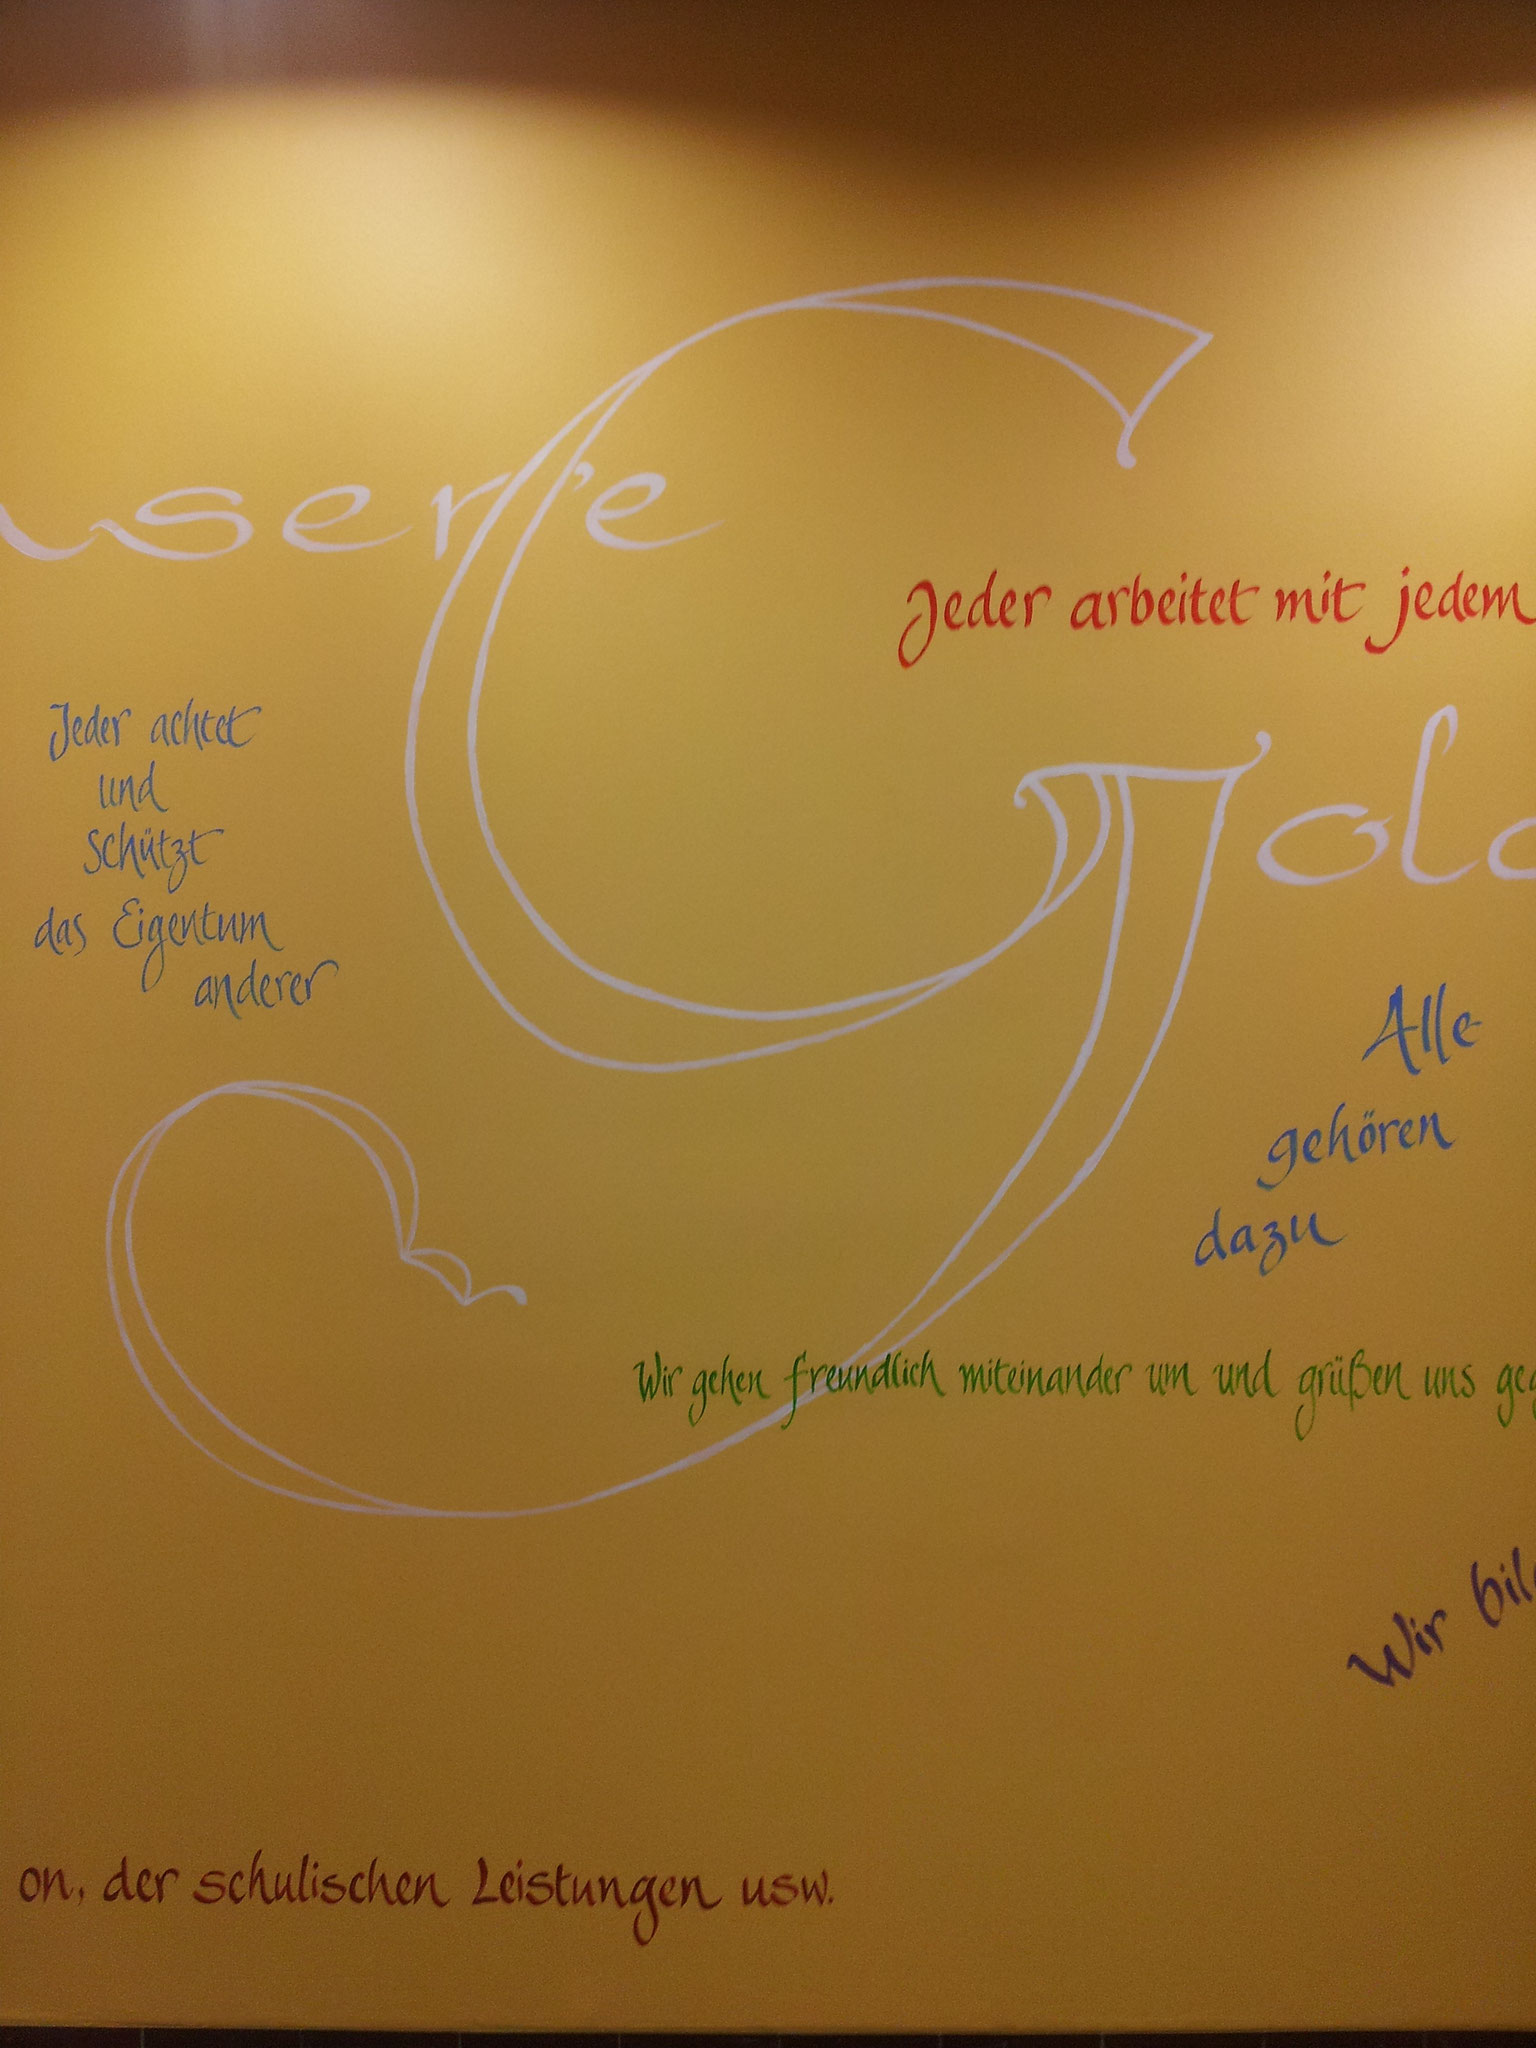 unsere
Jeder arbeitet mit jedem
Jeder achtet
und
schützt
das Eigentum
anderer
Gold
Alle
gehören
dazu
Wir gehen freundlich miteinander um und grüßen uns geg
Wir bil
on, der schulischen Leistungen usw.